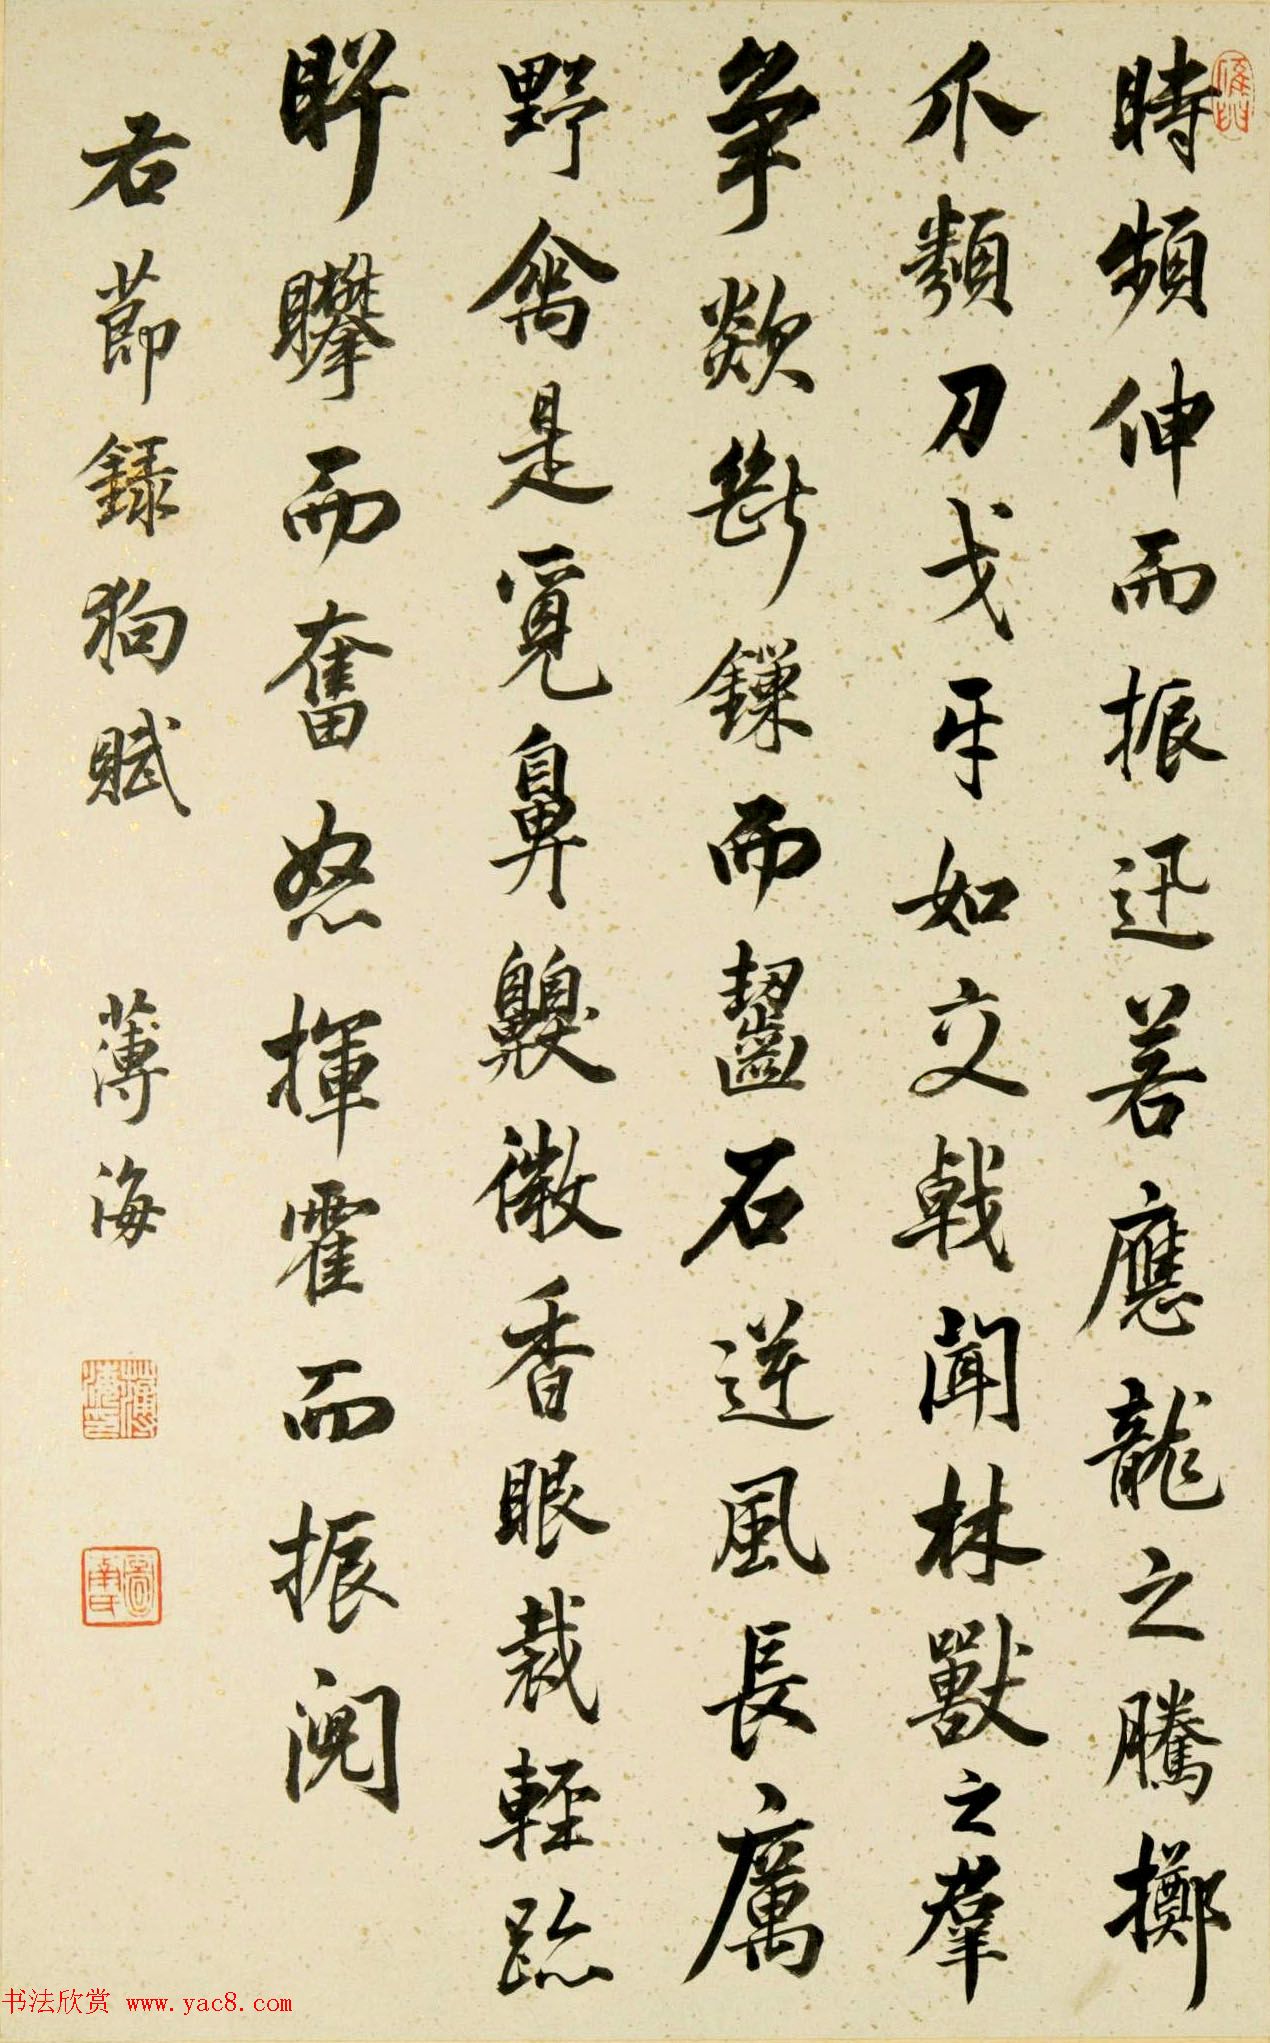 時頻伸而振迅若應龍之騰擲
爪類刀戈牙如交戟聞林獸之羣
爭欻斷鏁而齧石逆風長厲
野禽是覓鼻齅微香眼裁輕跡
而奮怒揮霍而振鬩
右節録狗賦
薄海
书法欣赏 www.yac8.com